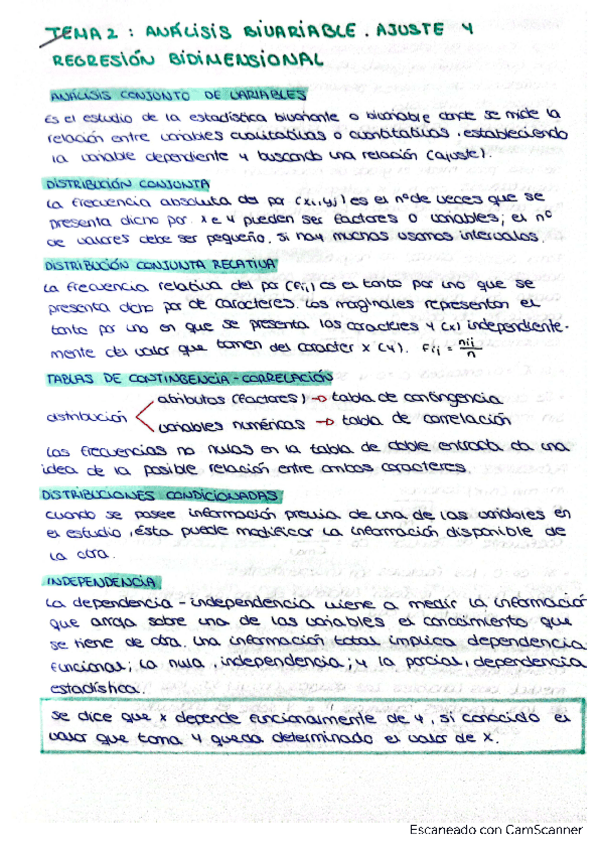 TEMA 2 : ANÁLISIS BIVARIABLE. AJUSTE Y
REGRESIÓN BIDIMENSIONAL
ANÁLISIS CONJUNTO DE VARIABLES
Es el estudio de la estadística bivariante o bivariable donde se mide la
relación entre variables cualitativas o cuantitativas, estableciendo
la variable dependiente y buscando una relación (ajuste).
DISTRIBUCIÓN CONJUNTA
La frecuencia absoluta del par (xi,yj) es el nº de veces que se
presenta dicho par. x e y pueden ser factores o variables; el nº
de valores debe ser pequeño. Si hay muchos usamos intervalos.
DISTRIBUCIÓN CONJUNTA RELATIVA
La frecuencia relativa del par (Fij) es el tanto por uno que se
presenta dicho par de caracteres. Los marginales representan el
tanto por uno en que se presenta los caracteres y (x) independiente-
mente del valor que tomen del caracter x (y). Fij = nij/n
TABLAS DE CONTINGENCIA - CORRELACIÓN
atributos (factores) → tabla de contingencia
distribución
variables numéricas → tabla de correlación
Las frecuencias no nulas en la tabla de doble entrada da una
idea de la posible relación entre ambos caracteres.
DISTRIBUCIONES CONDICIONADAS
Cuando se posee información previa de una de las variables en
el estudio, ésta puede modificar la información disponible de
la otra.
INDEPENDENCIA
La dependencia - independencia viene a medir la información
que arroja sobre una de las variables el conocimiento que
se tiene de otra. Una información total implica dependencia
funcional; la nula, independencia; y la parcial, dependencia
estadística.
Se dice que x depende funcionalmente de y, si conocido el
valor que toma y queda determinado el valor de x.
Escaneado con CamScanner